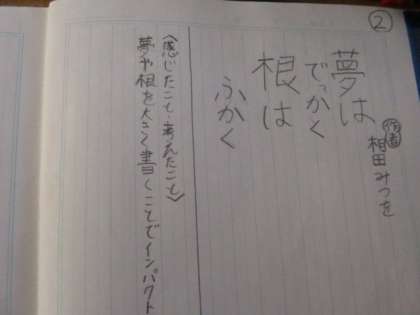 ②
作者 相田みつを
夢は
でっかく
根は
ふかく
〈感じたこと・考えたこと〉
夢や根を大きく書くことでインパクト